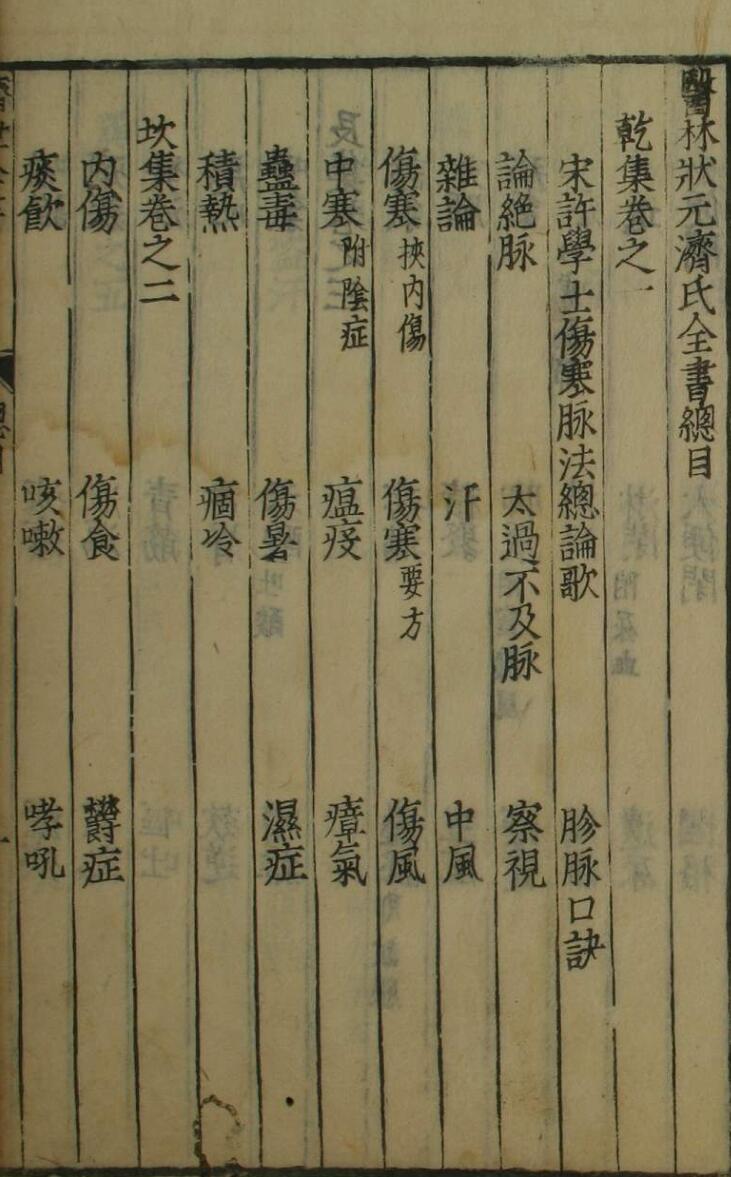 醫林狀元濟氏全書總目
乾集卷之一
宋許學士傷寒脉法總論歌 胗脉口訣
論絕脉 太過不及脉 察視
雜論 汗 中風
傷寒挾內傷 傷寒要方 傷風
中寒附陰症 瘟疫 瘴氣
蠱毒 傷暑 濕症
積熱 痼冷
坎集卷之二
內傷 傷食 欝症
痰飲 咳嗽 哮吼